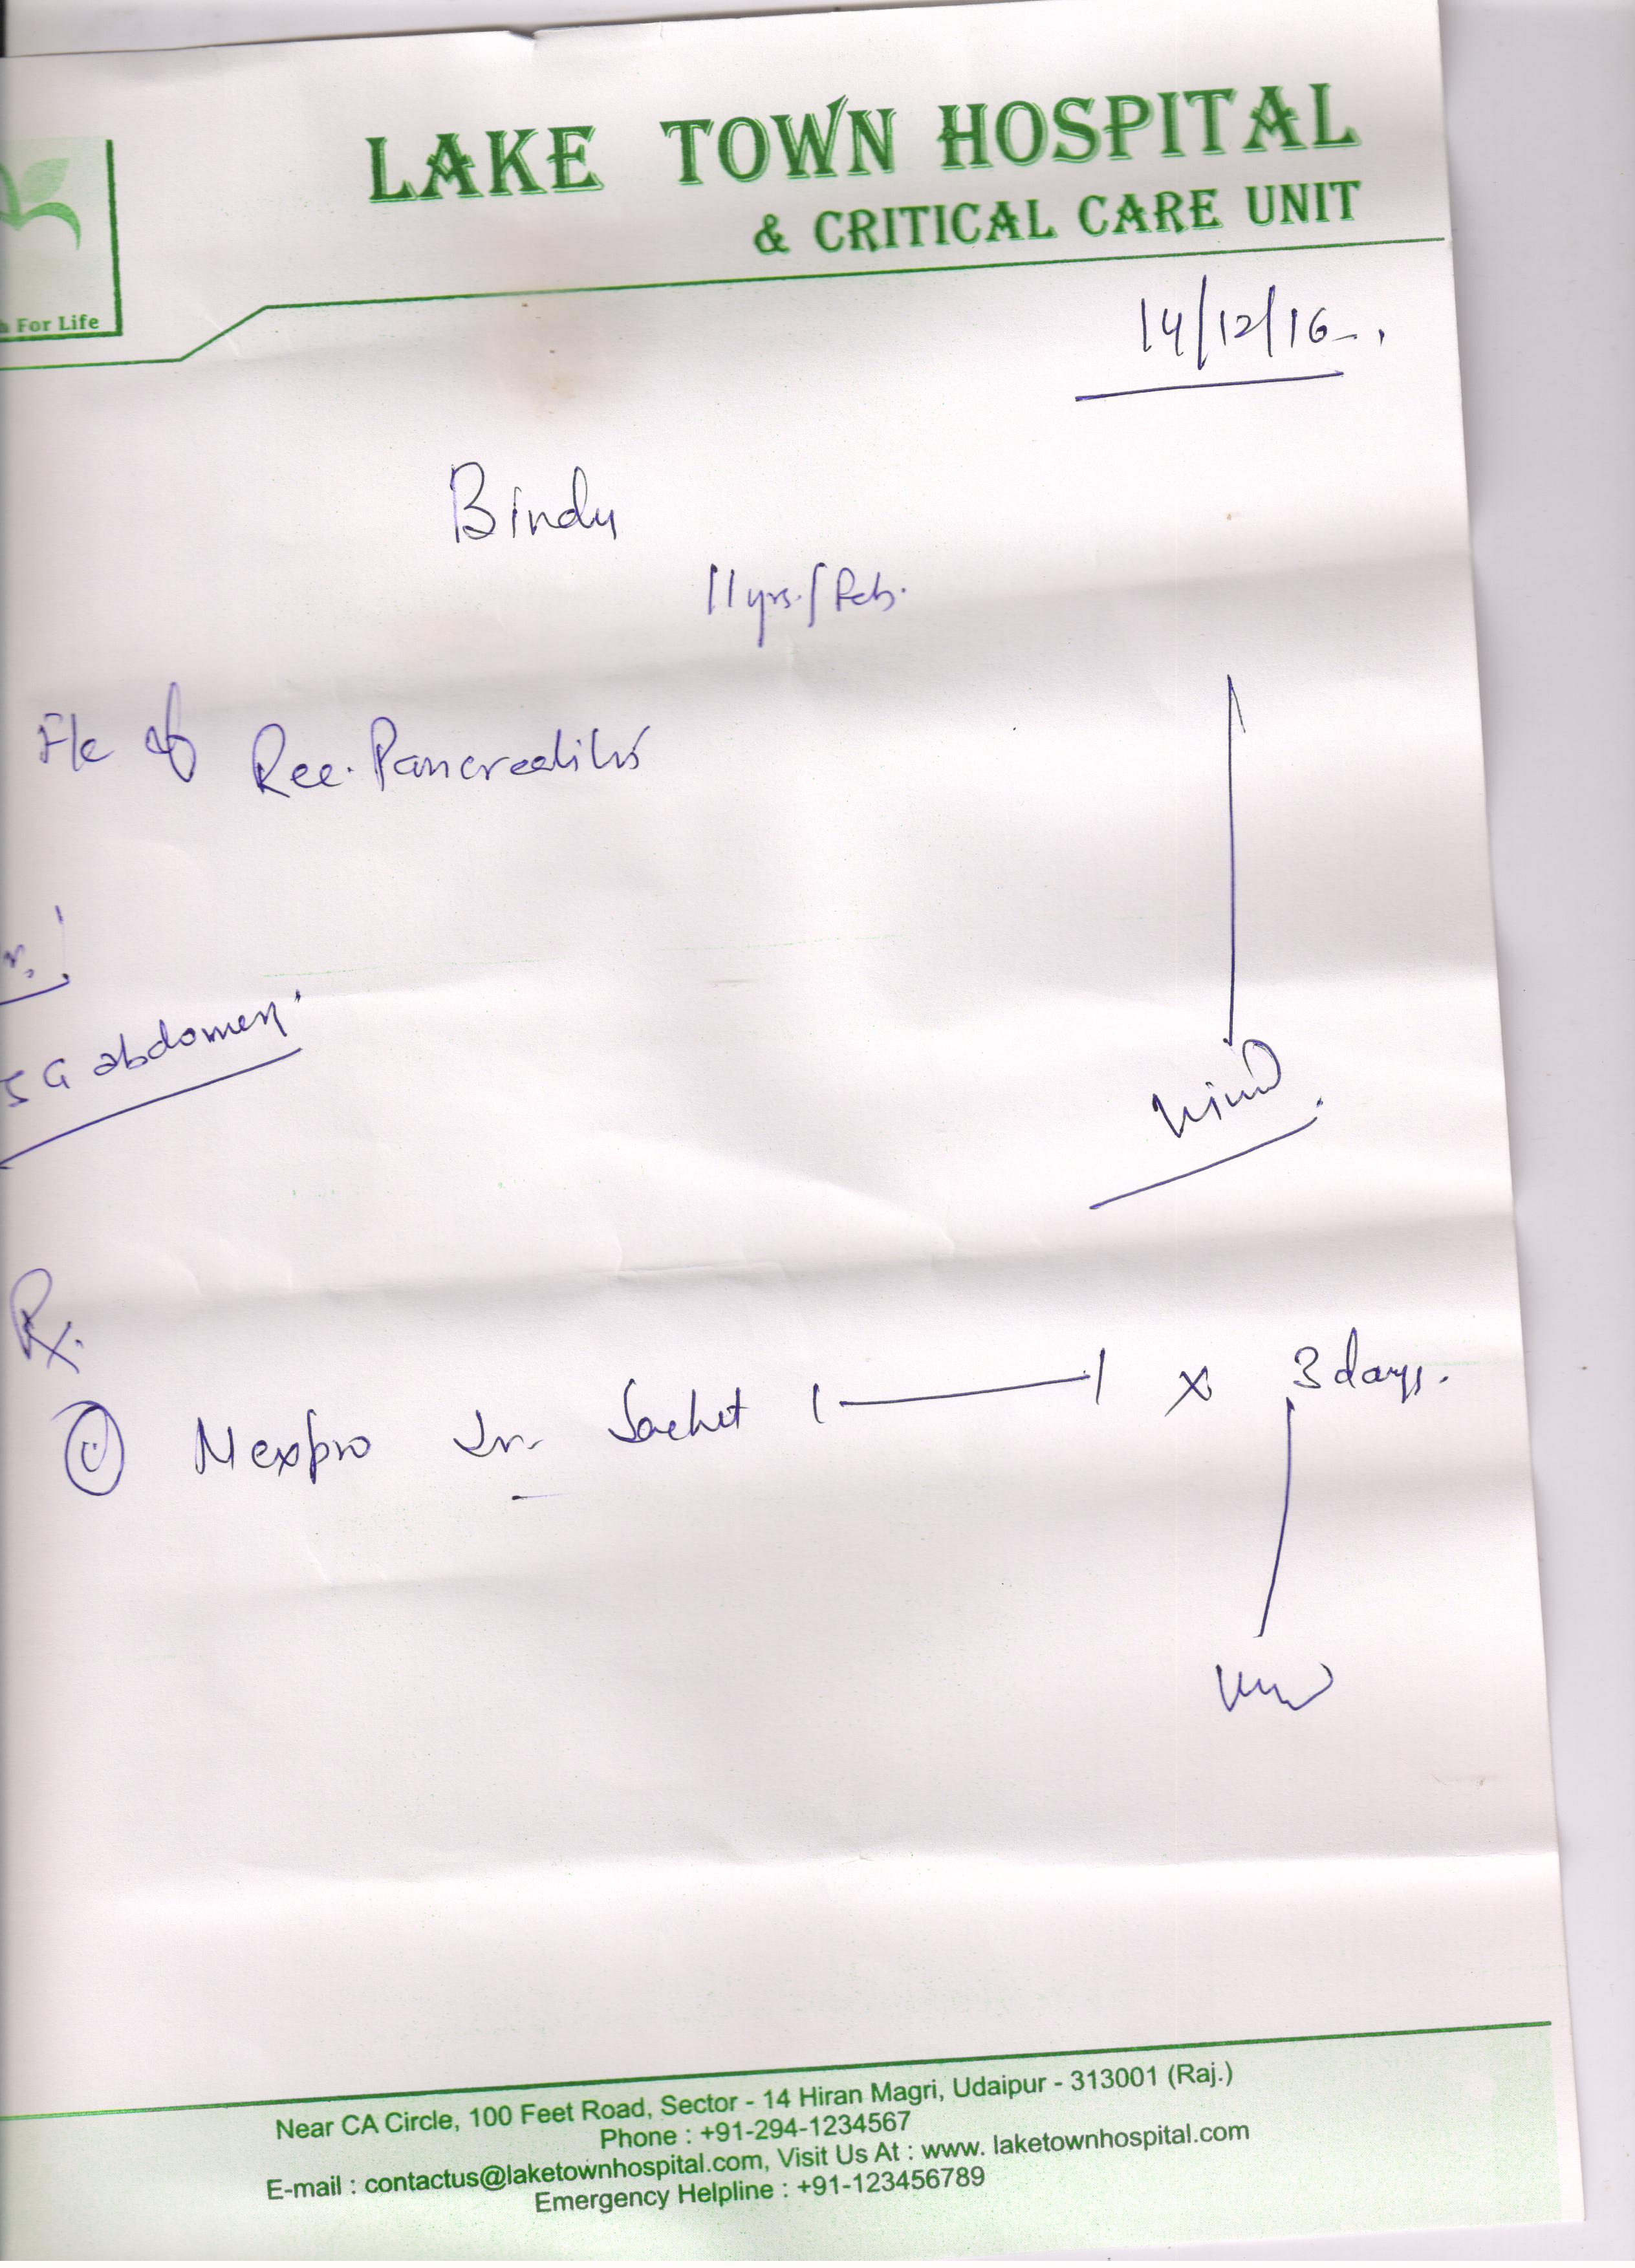 LAKE TOWN HOSPITAL
& CRITICAL CARE UNIT
For Life
14/12/16
Bindu
11 yrs./Feb.
F/c of Rec. Pancreatitis
SG abdomen
Rx.
① Nexpro Jr. Sachet 1——1 x 3 days.
Near CA Circle, 100 Feet Road, Sector - 14 Hiran Magri, Udaipur - 313001 (Raj.)
Phone : +91-294-1234567
E-mail : contactus@laketownhospital.com, Visit Us At : www. laketownhospital.com
Emergency Helpline : +91-123456789